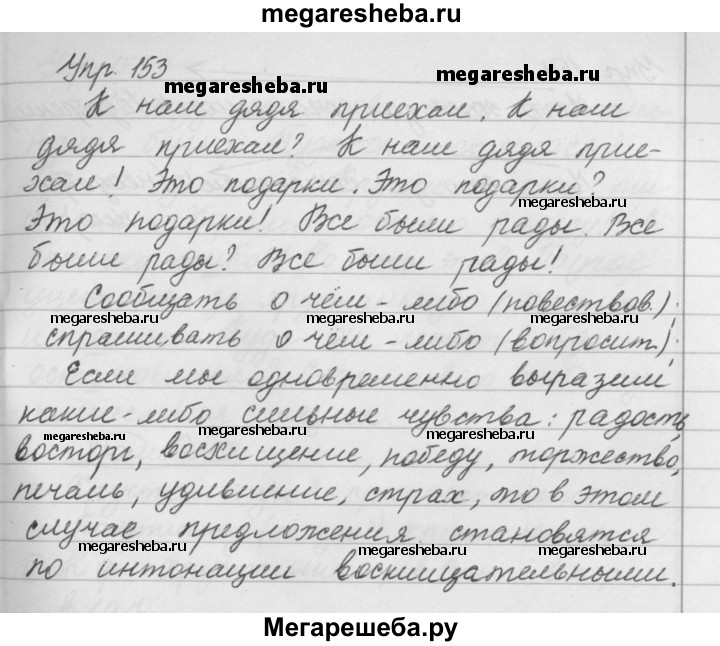 megaresheba.ru
Упр. 153
megaresheba.ru megaresheba.ru
К нам дядя приехал. К нам
дядя приехал? К нам дядя прие-
хал! Это подарки. Это подарки?
megaresheba.ru
Это подарки! Все были рады. Все
были рады? Все были рады!
megaresheba.ru megaresheba.ru
Сообщать о чём-либо (повествов.);
megaresheba.ru megaresheba.ru
спрашивать о чём-либо (вопросит.);
Если мы одновременно выразим
какие-либо сильные чувства: радость,
megaresheba.ru megaresheba.ru megaresheba.ru
восторг, восхищение, победу, торжество,
печаль, удивление, страх, то в этом
случае предложения становятся
megaresheba.ru megaresheba.ru megaresheba.ru
по интонации восклицательными.
Мегарешеба.ру